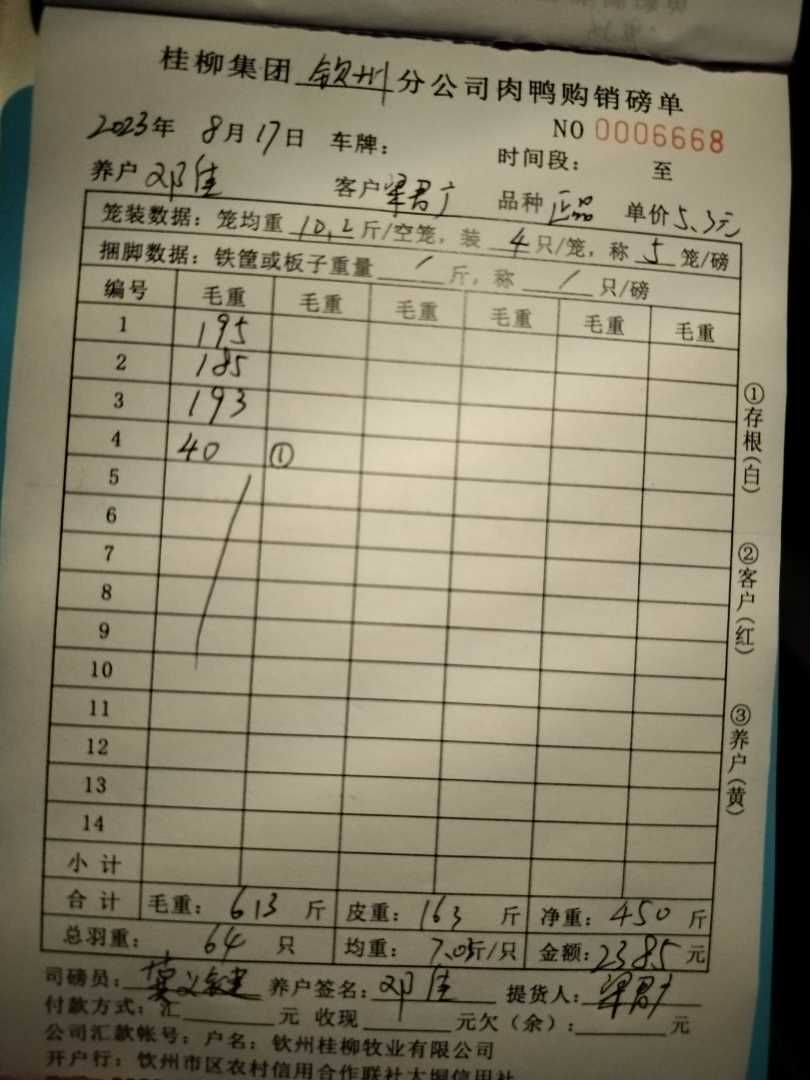 桂柳集团 钦州 分公司肉鸭购销磅单
NO 0006668
2023年 8月17日 车牌： 时间段： 至
养户 邓佳 客户 梁君广 品种 正品 单价5.3元
笼装数据：笼均重 10.2 斤/空笼，装 4 只/笼，称 5 笼/磅
捆脚数据：铁筐或板子重量 / 斤，称 / 只/磅
编号 毛重 毛重 毛重 毛重 毛重 毛重
1 195
2 185
3 193
4 40 ①
5
6
7
8
9
10
11
12
13
14
小 计
合 计 毛重：613 斤 皮重：163 斤 净重：450 斤
总羽重： 64 只 均重： 7.05斤/只 金额：2385 元
司磅员： 养户签名：邓佳 提货人：梁君广
付款方式：汇 元 收现 元欠（余）： 元
公司汇款帐号：户名：钦州桂柳牧业有限公司
开户行：钦州市区农村信用合作联社大垌信用社
①存根(白)
②客户(红)
③养户(黄)